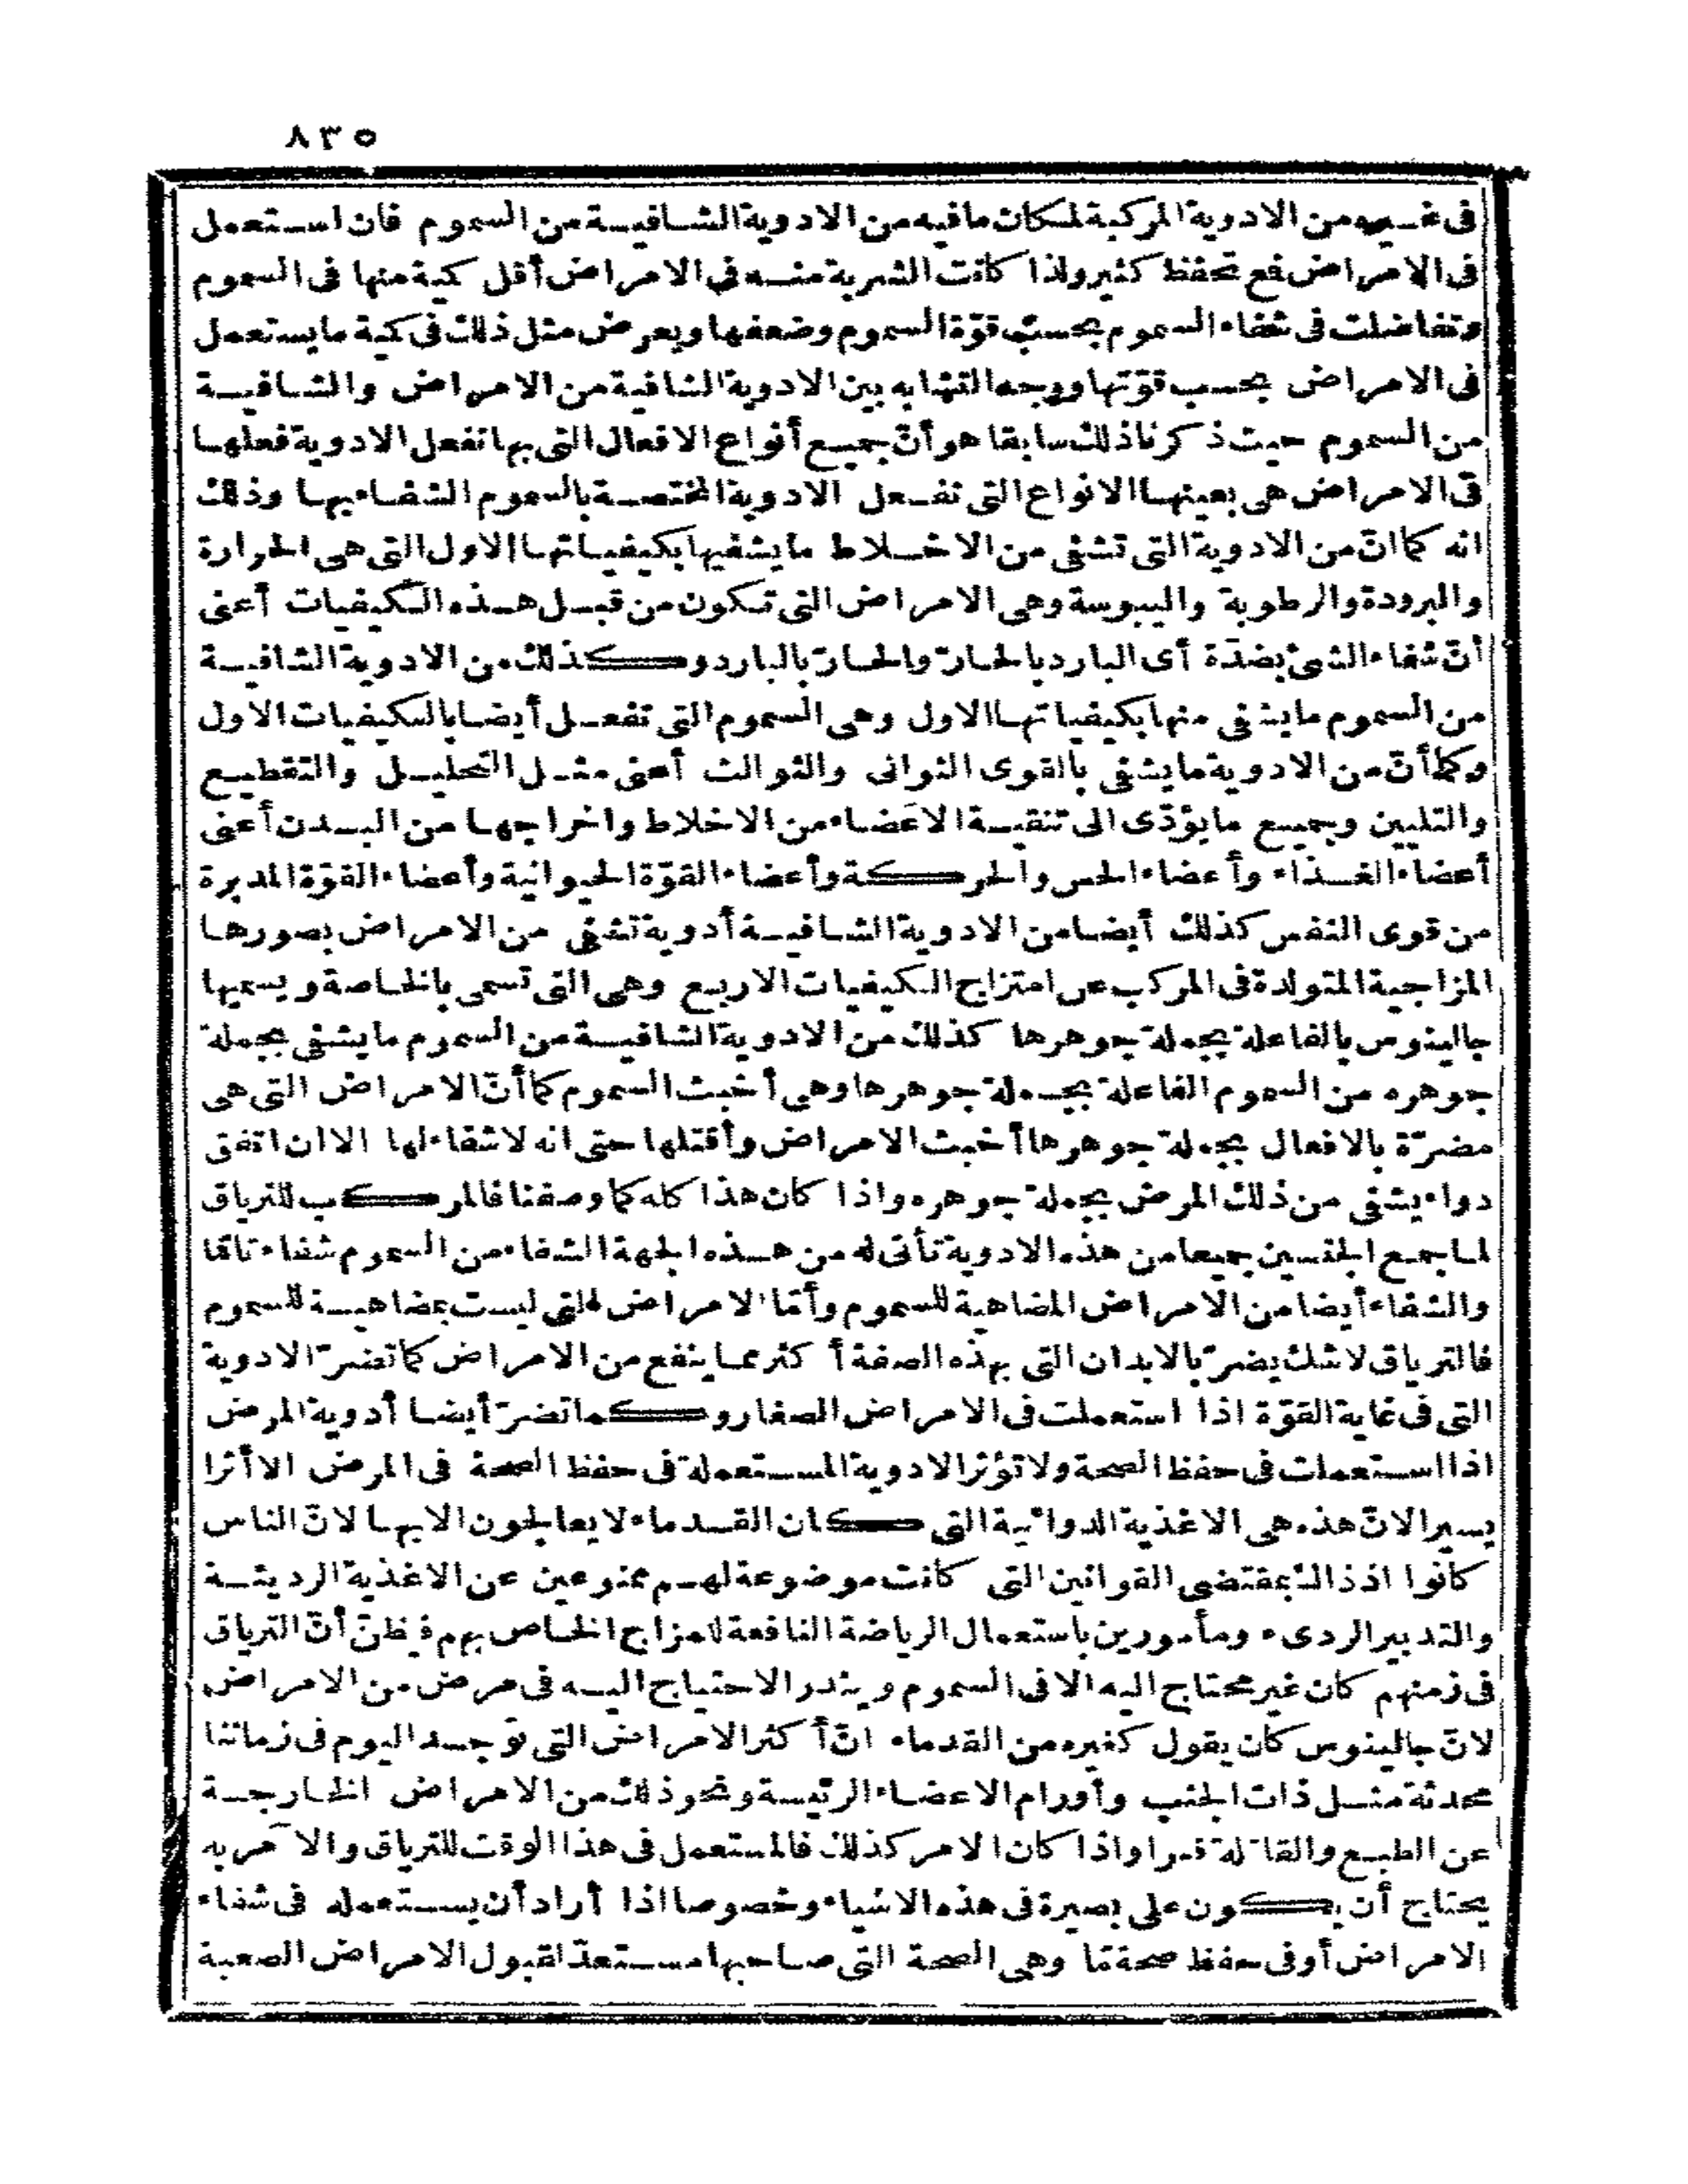 ٨٣٥
فى غـيره من الادوية المركبة لمكان مافيه من الادوية الشـافيـة من السموم فان اسـتعمل
فى الامراض فع تحفظ كثير ولذا كانت الشربة منـه فى الامراض أقل كمية منها فى السموم
وتفاضلت فى شفاء السموم بحسب قوّة السموم وضعفها ويعرض مثل ذلك فى كمية مايستعمل
فى الامراض بحسب قوّتها ووجه التشابه بين الادوية الشافية من الامراض والشـافيـة
من السموم حيث ذكرنا ذلك سابقا هو أنّ جميـع أنواع الافعال التى بها تفعل الادوية فعلهـا
فى الامراض هى بعينهـا الانواع التى تفـعل الادوية المختصـة بالسموم الشفـاء بهـا وذلك
انه كما انّ من الادوية التى تشفى من الاخـلاط مايشفيها بكيفيـاتهـا الاول التى هى الحرارة
والبرودة والرطوبة واليبوسة وهى الامراض التى تـكون من قبـل هـذه الـكيفيات أعنى
أنّ شفاء الشئ بضدّة أى البارد بالحـارّ والحـارّ بالبارد وكذلك من الادوية الشافيـة
من السموم مايشفى منها بكيفياتهـا الاول وهى السموم التى تفعـل أيضـا بالـكيفيات الاول
وكما أنّ من الادوية مايشفى بالقوى الثوانى والثوالث أعنى مثـل التحليـل والتقطيـع
والتليين وجميـع مايؤدّى الى تنقيـة الاعضـاء من الاخلاط واخراجهـا من البـدن أعنى
أعضاء الغـذاء وأعضاء الحس والحركة وأعضاء القوّة الحيوانية وأعضاء القوّة المدبرة
من قوى النفس كذلك أيضـا من الادوية الشـافيـة أدوية تشفى من الامراض بصورهـا
المزاجية المتولدة فى المركب عن امتزاج الـكيفيات الاربع وهى التى تسمى بالخـاصة ويسميها
جالينوس بالفاعلة بجملة جوهرها كذلك من الادوية الشافيـة من السموم مايشفى بجملة
جوهره من السموم الفاعلة بجـملة جوهرها وهى أخبث السموم كما أنّ الامراض التى هى
مضرّة بالافعال بجملة جوهرها أخبث الامراض وأقتلها حتى انه لاشفاء لها الا ان اتفق
دواء يشفى من ذلك المرض بجملة جوهره واذا كان هذا كله كما وصفنا فالمركب للترياق
لمـا جمـع الجنسين جميعا من هذه الادوية تأتى له من هـذه الجهة الشفاء من السموم شفاء تامّا
والشفاء أيضا من الامراض المضاهية للسموم وأمّا الامراض التى ليست بمضاهيـة للسموم
فالترياق لاشك يضرّ بالابدان التى بهذه الصفة أكثر ممـا ينفع من الامراض كما تضرّ الادوية
التى فى غاية القوّة اذا استعملت فى الامراض الصغار وكما تضرّ أيضـا أدوية المرض
اذا اسـتعملت فى حفظ الصحة ولا تؤثر الادوية المسـتعملة فى حفظ الصحة فى المرض الا أثرا
يسيرا لانّ هذه هى الاغذية الدوائية التى كان القـدماء لا يعالجون الا بهـا لانّ الناس
كانوا اذ ذاك بمقتضى القوانين التى كانت موضوعة لهـم ممنوعين عن الاغذية الرديئـة
والتدبير الردىء ومأمورين باستعمال الرياضة النافعة للمزاج الخـاص بهم فيظنّ أنّ الترياق
فى زمنهم كان غير محتاج اليه الا فى السموم ويندر الاحتياج اليـه فى مرض من الامراض
لانّ جالينوس كان يقول كغيره من القدماء انّ أكثر الامراض التى توجـد اليوم فى زماننا
محدثة مثـل ذات الجنب وأورام الاعضـاء الرئيسة ونحو ذلك من الامراض الخـارجـة
عن الطبـع والقاتلة قسرا واذا كان الامر كذلك فالمستعمل فى هذا الوقت للترياق والآمر به
يحتاج أن يكون على بصيرة فى هذه الاشياء وخصوصا اذا أراد أن يسـتعمله فى شفاء
الامراض أو فى حفظ صحة مّا وهى الصحة التى صـاحبها مسـتعدّ لقبول الامراض الصعبة